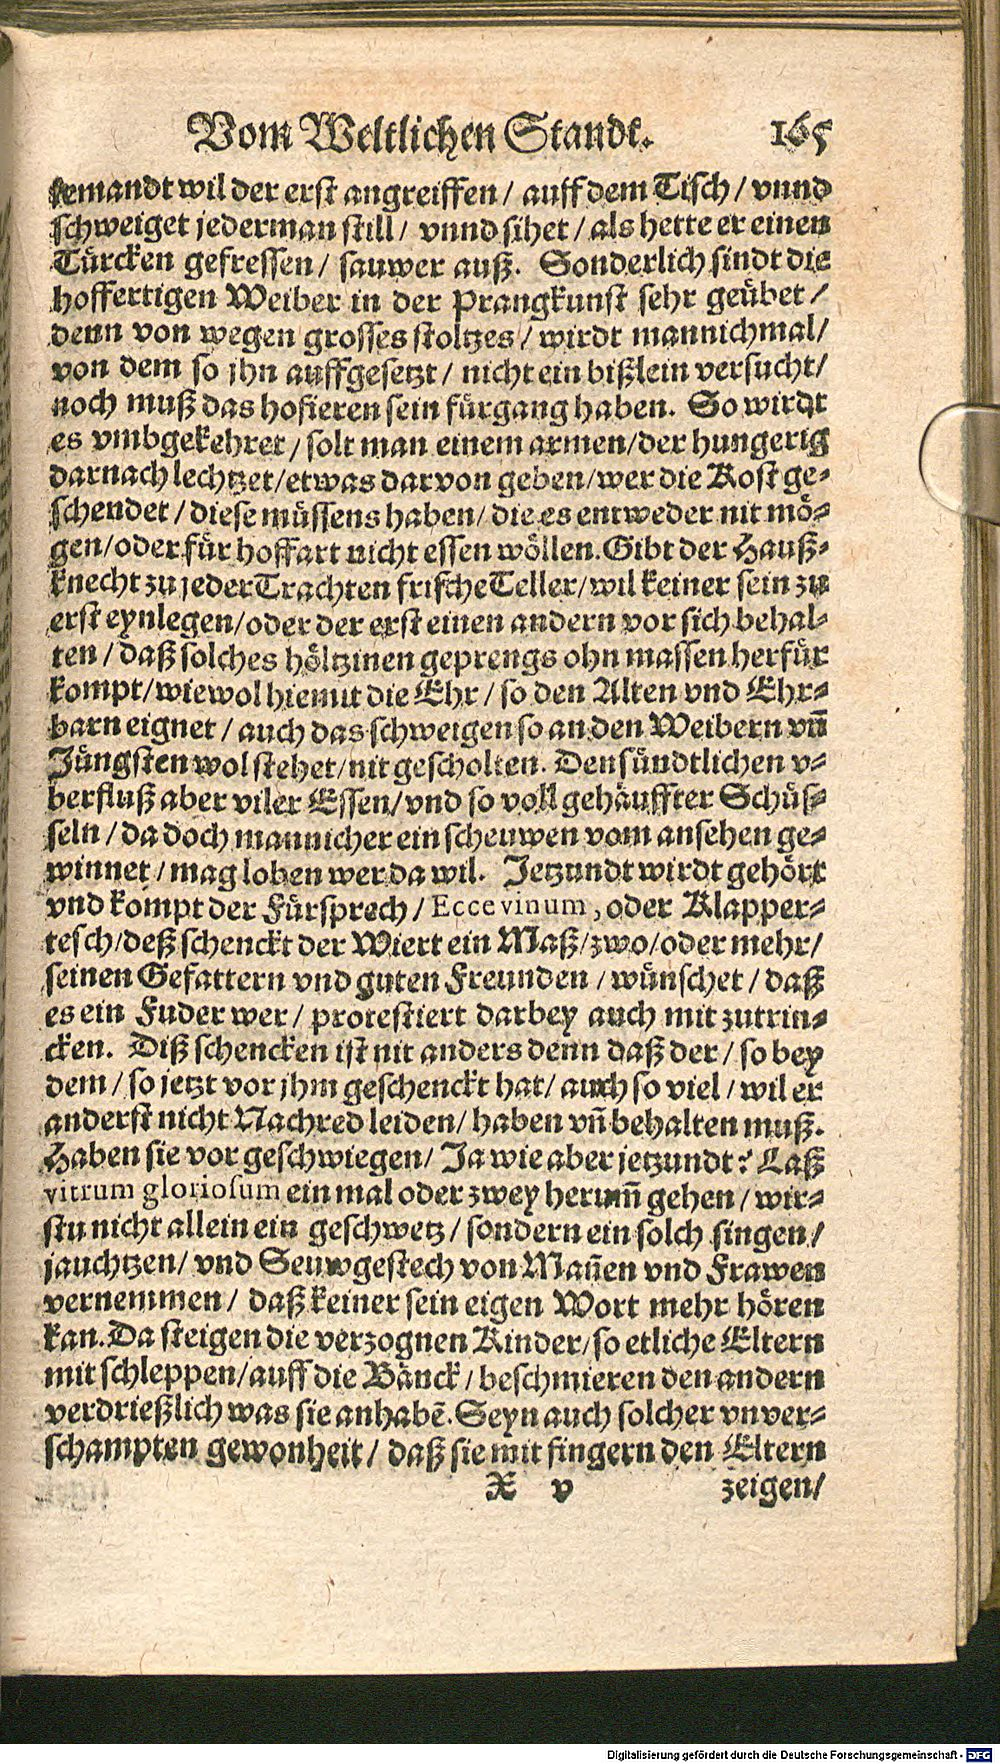 Vom Weltlichen Standt. 165
jemandt wil der erst angreiffen / auff dem Tisch / vnnd
schweiget jederman still / vnnd sihet / als hette er einen
Türcken gefressen / sauwer auß. Sonderlich sindt die
hoffertigen Weiber in der Prangkunst sehr geübet /
denn von wegen grosses stoltzes / wirdt mannichmal /
von dem so jhn auffgesetzt / nicht ein bißlein versucht /
noch muß das hofieren sein fürgang haben. So wirdt
es vmbgekehret / solt man einem armen / der hungerig
darnach lechtzet / etwas darvon geben / wer die Kost ge-
schendet / diese müssens haben / die es entweder nit mö-
gen / oder für hoffart nicht essen wöllen. Gibt der Hauß-
knecht zu jeder Trachten frische Teller / wil keiner sein zu
erst eynlegen / oder der erst einen andern vor sich behal-
ten / daß solches höltzinen geprengs ohn massen herfür
kompt / wiewol hiemit die Ehr / so den Alten vnd Ehr-
barn eignet / auch das schweigen so an den Weibern vñ
Jüngsten wol stehet / nit gescholten. Den sündtlichen v-
berfluß aber viler Essen / vnd so voll gehäuffter Schüs-
seln / da doch mannicher ein scheuwen vom ansehen ge-
winnet / mag loben wer da wil. Jetzundt wirdt gehört
vnd kompt der Fürsprech / Ecce vinum, oder Klapper-
tesch / deß schenckt der Wiert ein Maß / zwo / oder mehr /
seinen Gefattern vnd guten Freunden / wünschet / daß
es ein Fuder wer / protestiert darbey auch mit zutrin-
cken. Diß schencken ist nit anders denn daß der / so bey
dem / so jetzt vor jhm geschenckt hat / auch so viel / wil er
anderst nicht Nachred leiden / haben vñ behalten muß.
Haben sie vor geschwiegen / Ja wie aber jetzundt? Laß
vitrum gloriosum ein mal oder zwey herum̃ gehen / wir-
stu nicht allein ein geschwetz / sondern ein solch singen /
jauchtzen / vnd Seuwgestech von Mañen vnd Frawen
vernemmen / daß keiner sein eigen Wort mehr hören
kan. Da steigen die verzognen Kinder / so etliche Eltern
mit schleppen / auff die Bänck / beschmieren den andern
verdrießlich was sie anhabẽ. Seyn auch solcher vnver-
schampten gewonheit / daß sie mit fingern den Eltern
X v zeigen /
Digitalisierung gefördert durch die Deutsche Forschungsgemeinschaft - DFG